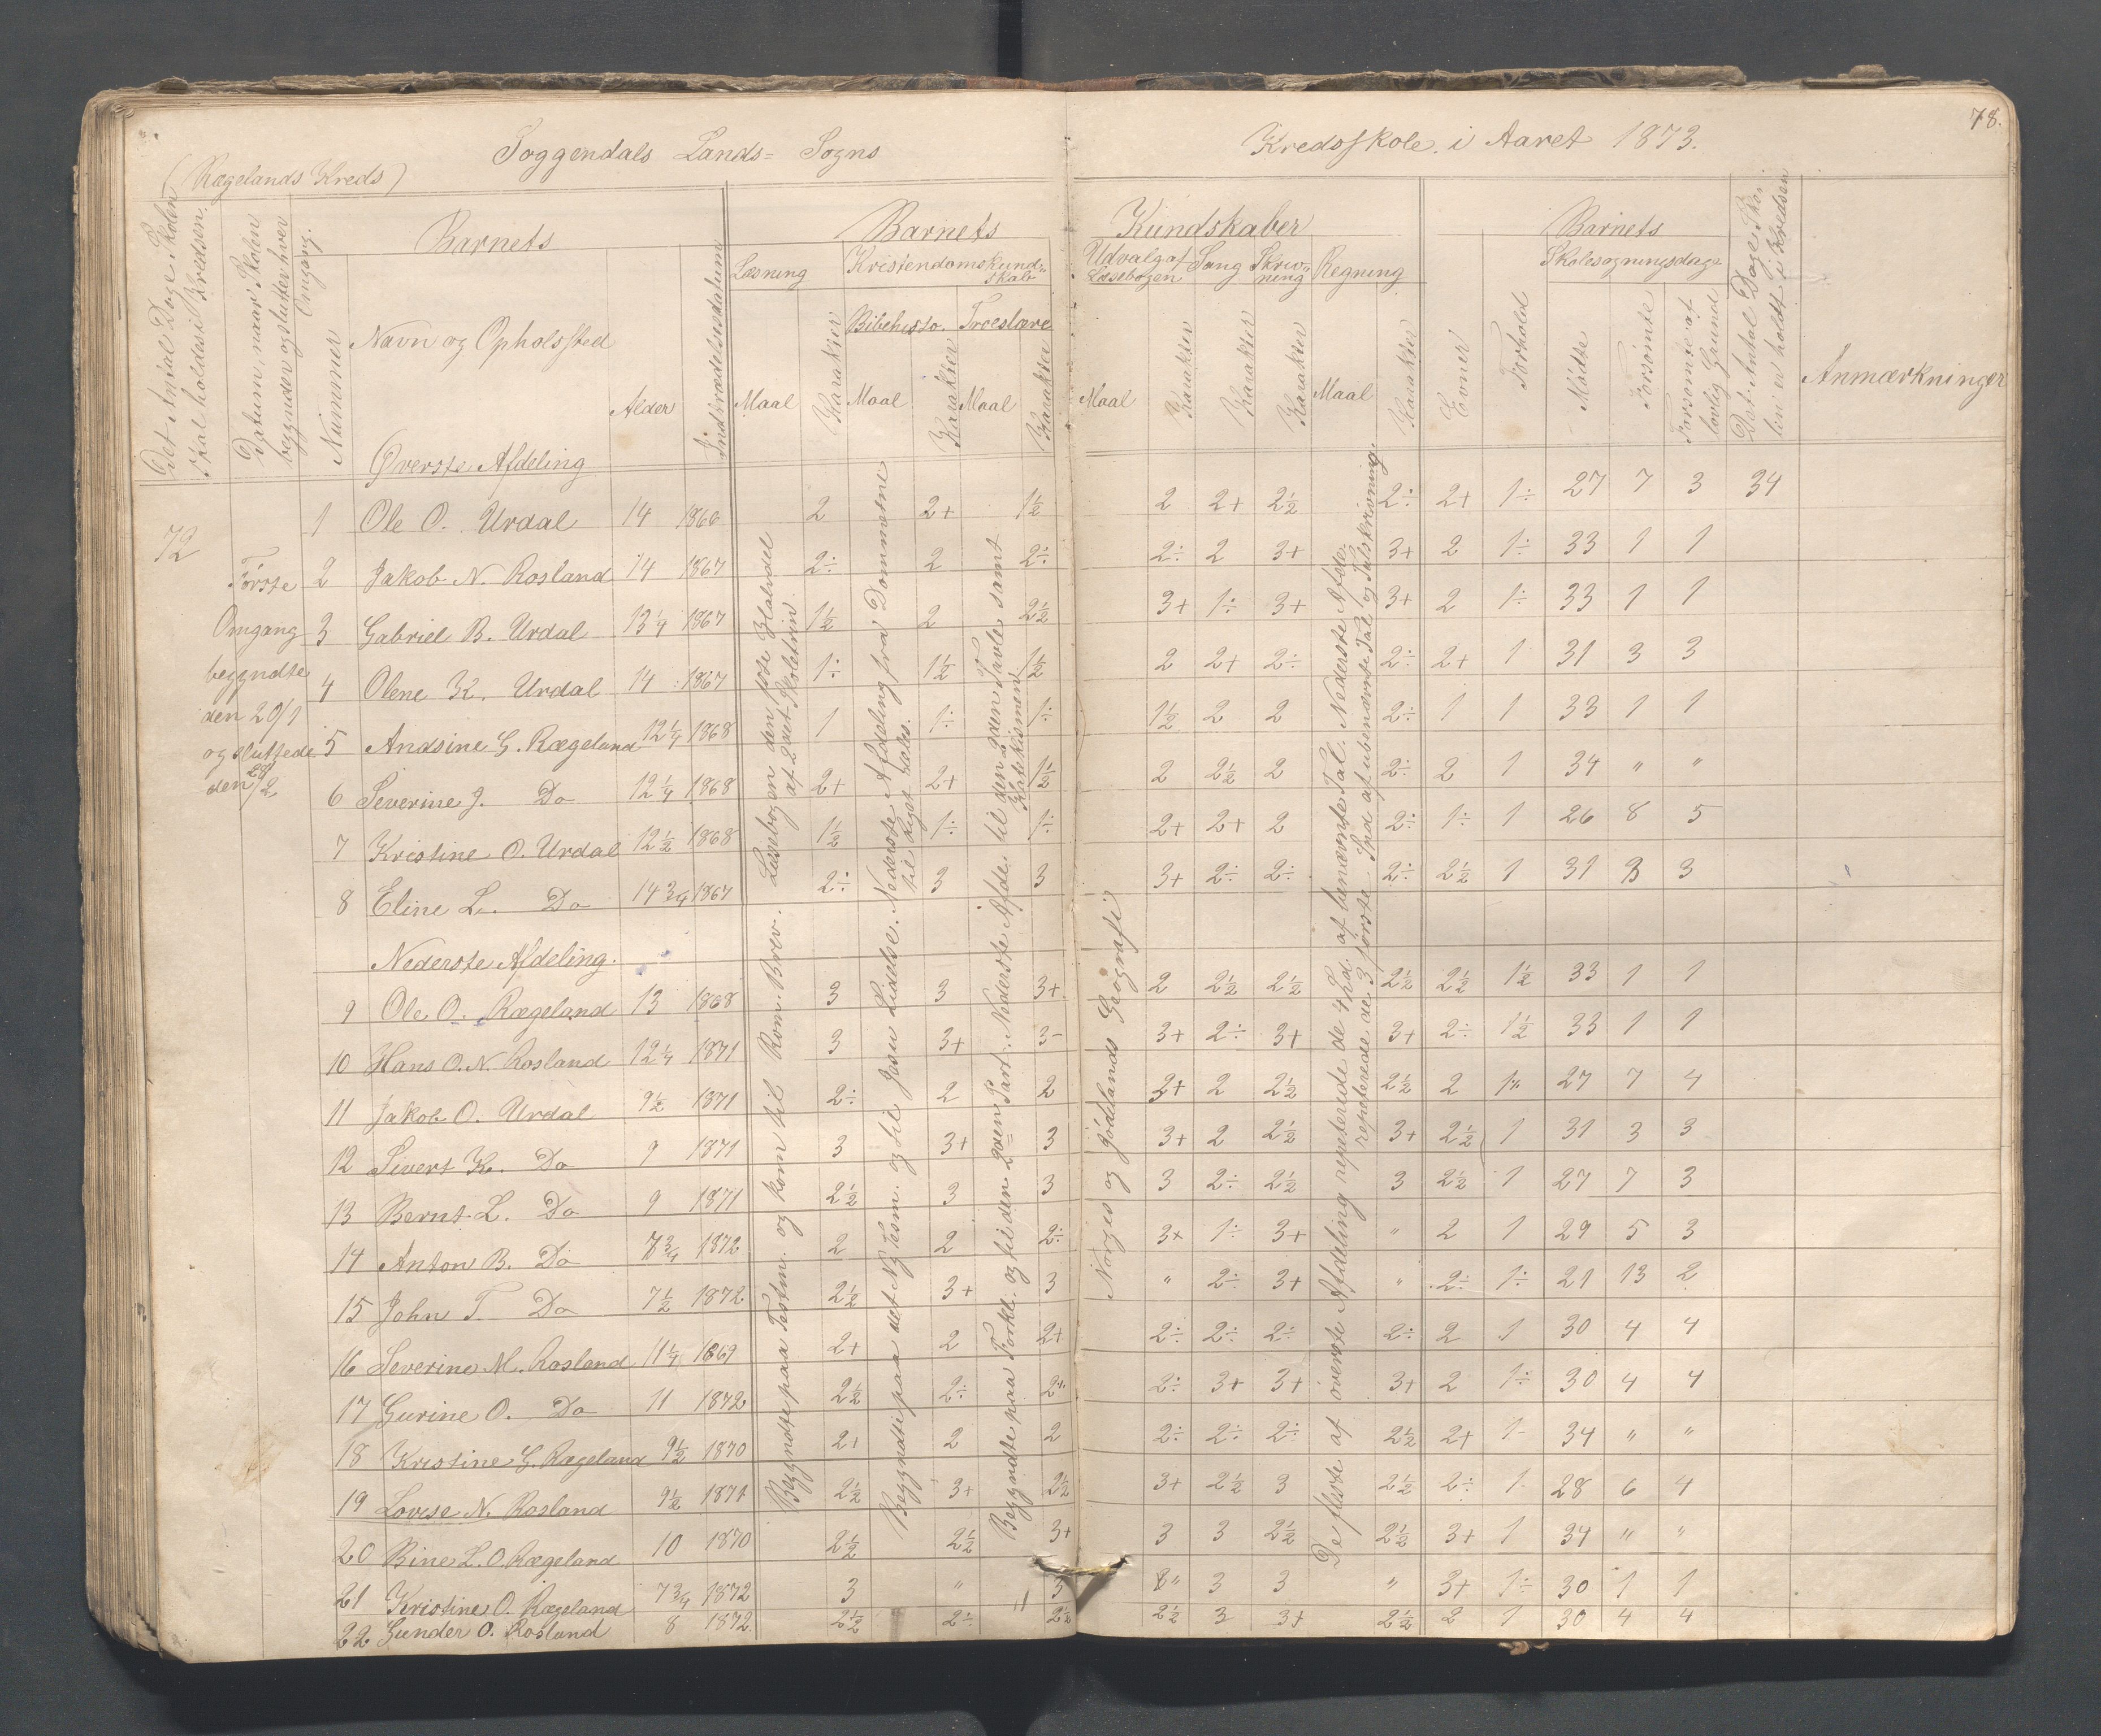 78.
Soggendals Lands= Sogns Kredsskole i Aaret 1873.
(Rægelands Kreds)
Det Antal Dage Skolen skal holdes i Kredsen.
Datum, naar Skolen begynder og slutter hver Omgang.
Nummer
Barnets
Navn og Opholssted
Alder
Indtrædelsesdatum
Barnets Kundskaber
Læsning
Maal
Karakter
Kristendomskund= skab
Bibelhisto.
Maal
Karakter
Troeslære
Maal
Karakter
Udvalg af Læsebogen
Maal
Karakter
Sang
Karakter
Skriv= ning
Karakter
Regning
Maal
Karakter
Barnets
Evner
Forhold
Skolesøgningsdage
Mødte
Forsømte
Forsømte af lovlig Grund
Det Antal Dage Sko= len er holdt i Kredsen
Anmærkninger
72
Første
Omgang
begyndte
den 20/1
og sluttede
den 28/2
Øverste Afdeling
1 Ole O. Urdal 14 1866 2 2+ 1½ 2 2+ 2½ 2÷ 2+ 1÷ 27 7 3 34
2 Jakob N. Rosland 14 1867 2÷ 2 2÷ 2÷ 2 3+ 3+ 2 1÷ 33 1 1
3 Gabriel B. Urdal 13¼ 1867 1½ 2 2½ 3+ 1÷ 3+ 3+ 2 1÷ 33 1 1
4 Olene K. Urdal 14 1867 1÷ 1½ 1½ 2 2+ 2÷ 2÷ 2+ 1 31 3 3
5 Andsine G. Rægeland 12¼ 1868 1 1÷ 1÷ 1½ 2 2 2÷ 1 1 33 1 1
6 Severine J. Do 12¼ 1868 2+ 2+ 1½ 2 2½ 2 2÷ 2 1 34 " "
7 Kristine O. Urdal 12½ 1868 1½ 1÷ 1÷ 2+ 2+ 2 2÷ 1÷ 1 26 8 5
8 Eline L. Do 14¾ 1867 2÷ 3 3 3+ 2÷ 2÷ 2÷ 2½ 1 31 3 3
Nederste Afdeling.
9 Ole O. Rægeland 13 1868 3 3 3+ 2 2½ 2½ 2½ 2½ 1½ 33 1 1
10 Hans O. N. Rosland 12¼ 1871 3 3+ 3- 3+ 2÷ 3+ 3+ 2÷ 1½ 33 1 1
11 Jakob O. Urdal 9½ 1871 2÷ 2 2 2+ 2 2½ 2½ 2 1÷ 27 7 4
12 Sivert K. Do 9 1871 3 3+ 3 3+ 2 2½ 3+ 2½ 1 31 3 3
13 Bernt L. Do 9 1871 2½ 3 3 3 2÷ 2½ 3 2½ 1 27 7 3
14 Anton B. Do 7¾ 1872 2 2 2÷ 3+ 1÷ 3+ " 2 1 29 5 3
15 John T. Do 7½ 1872 2½ 3+ 3 " 2÷ 3+ " 2÷ 1÷ 21 13 2
16 Severine M. Rosland 11¼ 1869 2+ 2 2+ 2÷ 2÷ 2÷ 2÷ 2 1 30 4 4
17 Gurine O. Do 11 1872 2½ 2÷ 2÷ 2÷ 3+ 3+ 3+ 2 1÷ 30 4 4
18 Kristine G. Rægeland 9½ 1870 2+ 2 2 2÷ 2÷ 2÷ 2½ 2+ 1- 34 " "
19 Lovise N. Rosland 9½ 1871 2½ 3+ 2½ 3+ 2½ 3 2½ 2÷ 1- 28 6 4
20 Bine L. O. Rægeland 10 1870 2½ 2½ 3+ 3 3 2½ 2½ 3+ 1 34 " "
21 Kristine O. Rægeland 7¾ 1872 3 " 3 " 3 3 " 3+ 1÷ 30 1 1
22 Gunder O. Rosland 8 1872 2½ 2÷ 2½ 2½ 3 3+ 2½ 2 1 30 4 4
Begyndte paa Testm. og kom til Rom. Brev. Læsebogen den første Halvdel
af 2det Skoletrin.
Begyndte paa det Ny Tesm. og til Jesu Lidelse. Nederste Afdeling fra Dommerne
til Riget deles.
Begyndte paa Forkl. og til den 2den Part. Nederste Afde. til den 2den Tavle samt
Katekismen.
Norges og Jødelands Geografi
De fleste af øverste Afdeling repeterede de 4 Sd. af benævnte Tal. Nederste Afde.
repeterede de 3 første Snd af ubenævnte Tal og Talskrivning.